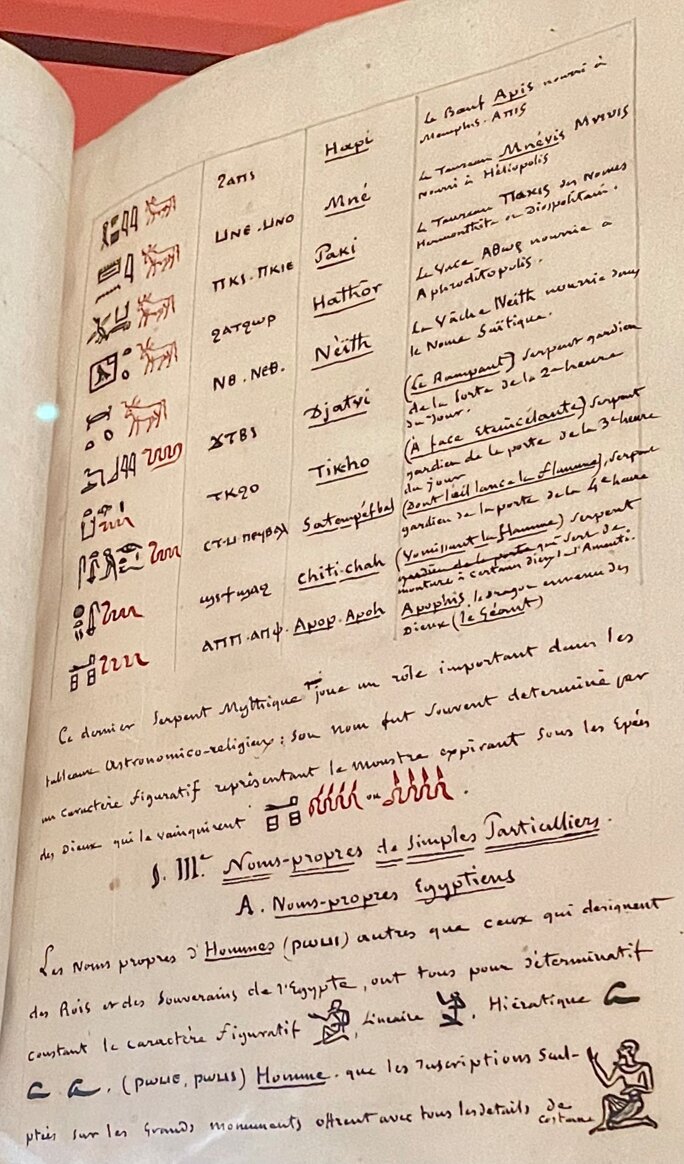 ϨΑΠΙ Hapi Le Bœuf Apis nourri à
Memphis. ΑΠΙΣ
ΜΝΕ . ΜΝΟ Mné Le Taureau Mnévis
nourri à Héliopolis
ΠΚΙ . ΠΚΙΕ Paki Le Taureau des Nomes
Hermonthite ou Diospolitain.
ϨΑΤϨΩΡ Hathôr La Vache nourrie à
Aphroditopolis.
ΝΘ . ΝΕΘ. Nèïth La Vâche Neith nourrie dans
le Nome Saïtique.
ϪΤΒΙ Djatvi (Le Rampant) serpent gardien
de la porte de la 2e heure
du jour.
ΤΚϨΟ Tikho (À face Etincélante) serpent
gardien de la porte de la 3e heure
du jour
Satempéfbal (Dont l'œil lance la flamme), serpent
gardien de la porte de la 4e heure
Chiti-chah (Vomissant la flamme) serpent
gardien de la porte qui sert de
monture à certains dieux de l'Amenti.
ΑΠΠ . ΑΠΦ . Apop. Apoph Apophis le dragon ennemi des
Dieux (le Géant)
Ce dernier Serpent Mythique joue un rôle important dans les
tableaux astronomico-religieux; son nom fut souvent determiné par
un caractère figuratif représentant le monstre expirant sous les Epées
des Dieux qui le vainquirent ou .
§. III.e Noms-propres de Simples Particulliers.
A. Noms-propres Egyptiens
Les Noms propres d'Hommes (ⲣⲱⲙⲓ) autres que ceux qui designent
des Rois et des Souverains de l'Egypte, ont tous pour déterminatif
constant le caractère figuratif , Linéaire , Hiératique
. . (ⲣⲱⲙⲉ, ⲣⲱⲙⲓ) Homme. que les Inscriptions Scul-
ptées sur les Grands monuments offrent avec tous les details de
costume